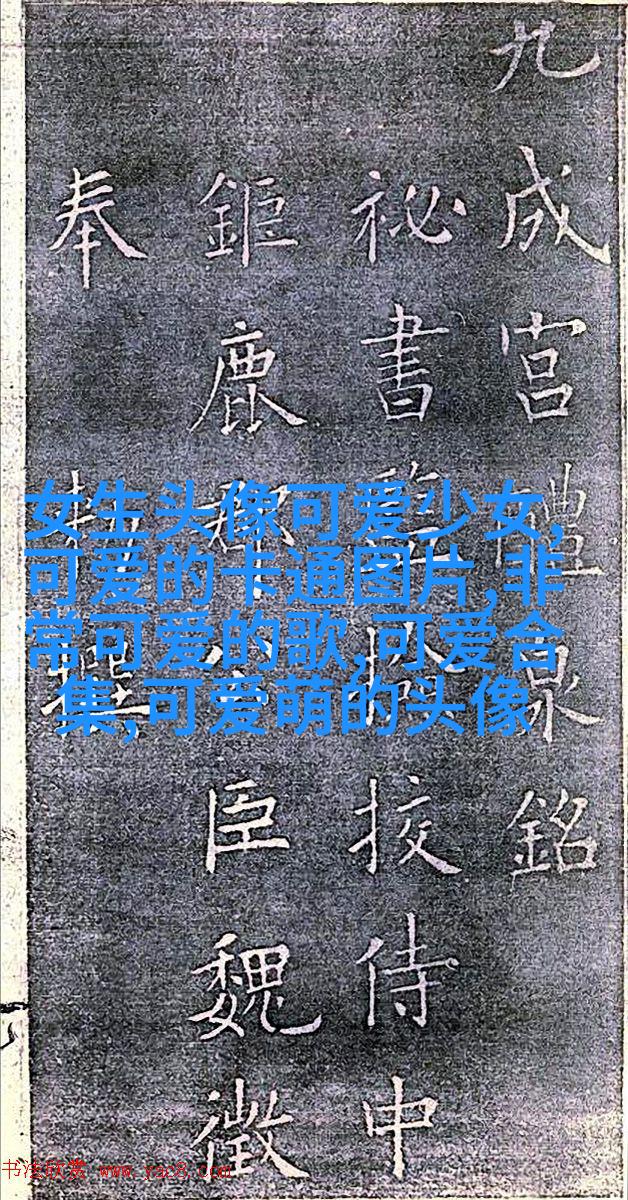 九成宮醴泉銘
祕書監撿挍侍中
鉅鹿郡公臣魏徵
奉勑撰
女生头像可爱少女,
可爱的卡通图片,非
常可爱的歌,可爱合
集,可爱萌的头像
书法欣赏 www.yac8.com